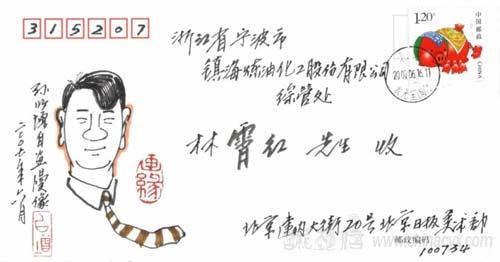 315207
1.20元
中国邮政
CHINA
浙江省宁波市
镇海炼油化工股份有限公司
综管处
林霄红 先生 收
自画漫像
二〇〇七年六月
连缘
北京建内大街20号北京日报美术部
邮政编码
100734